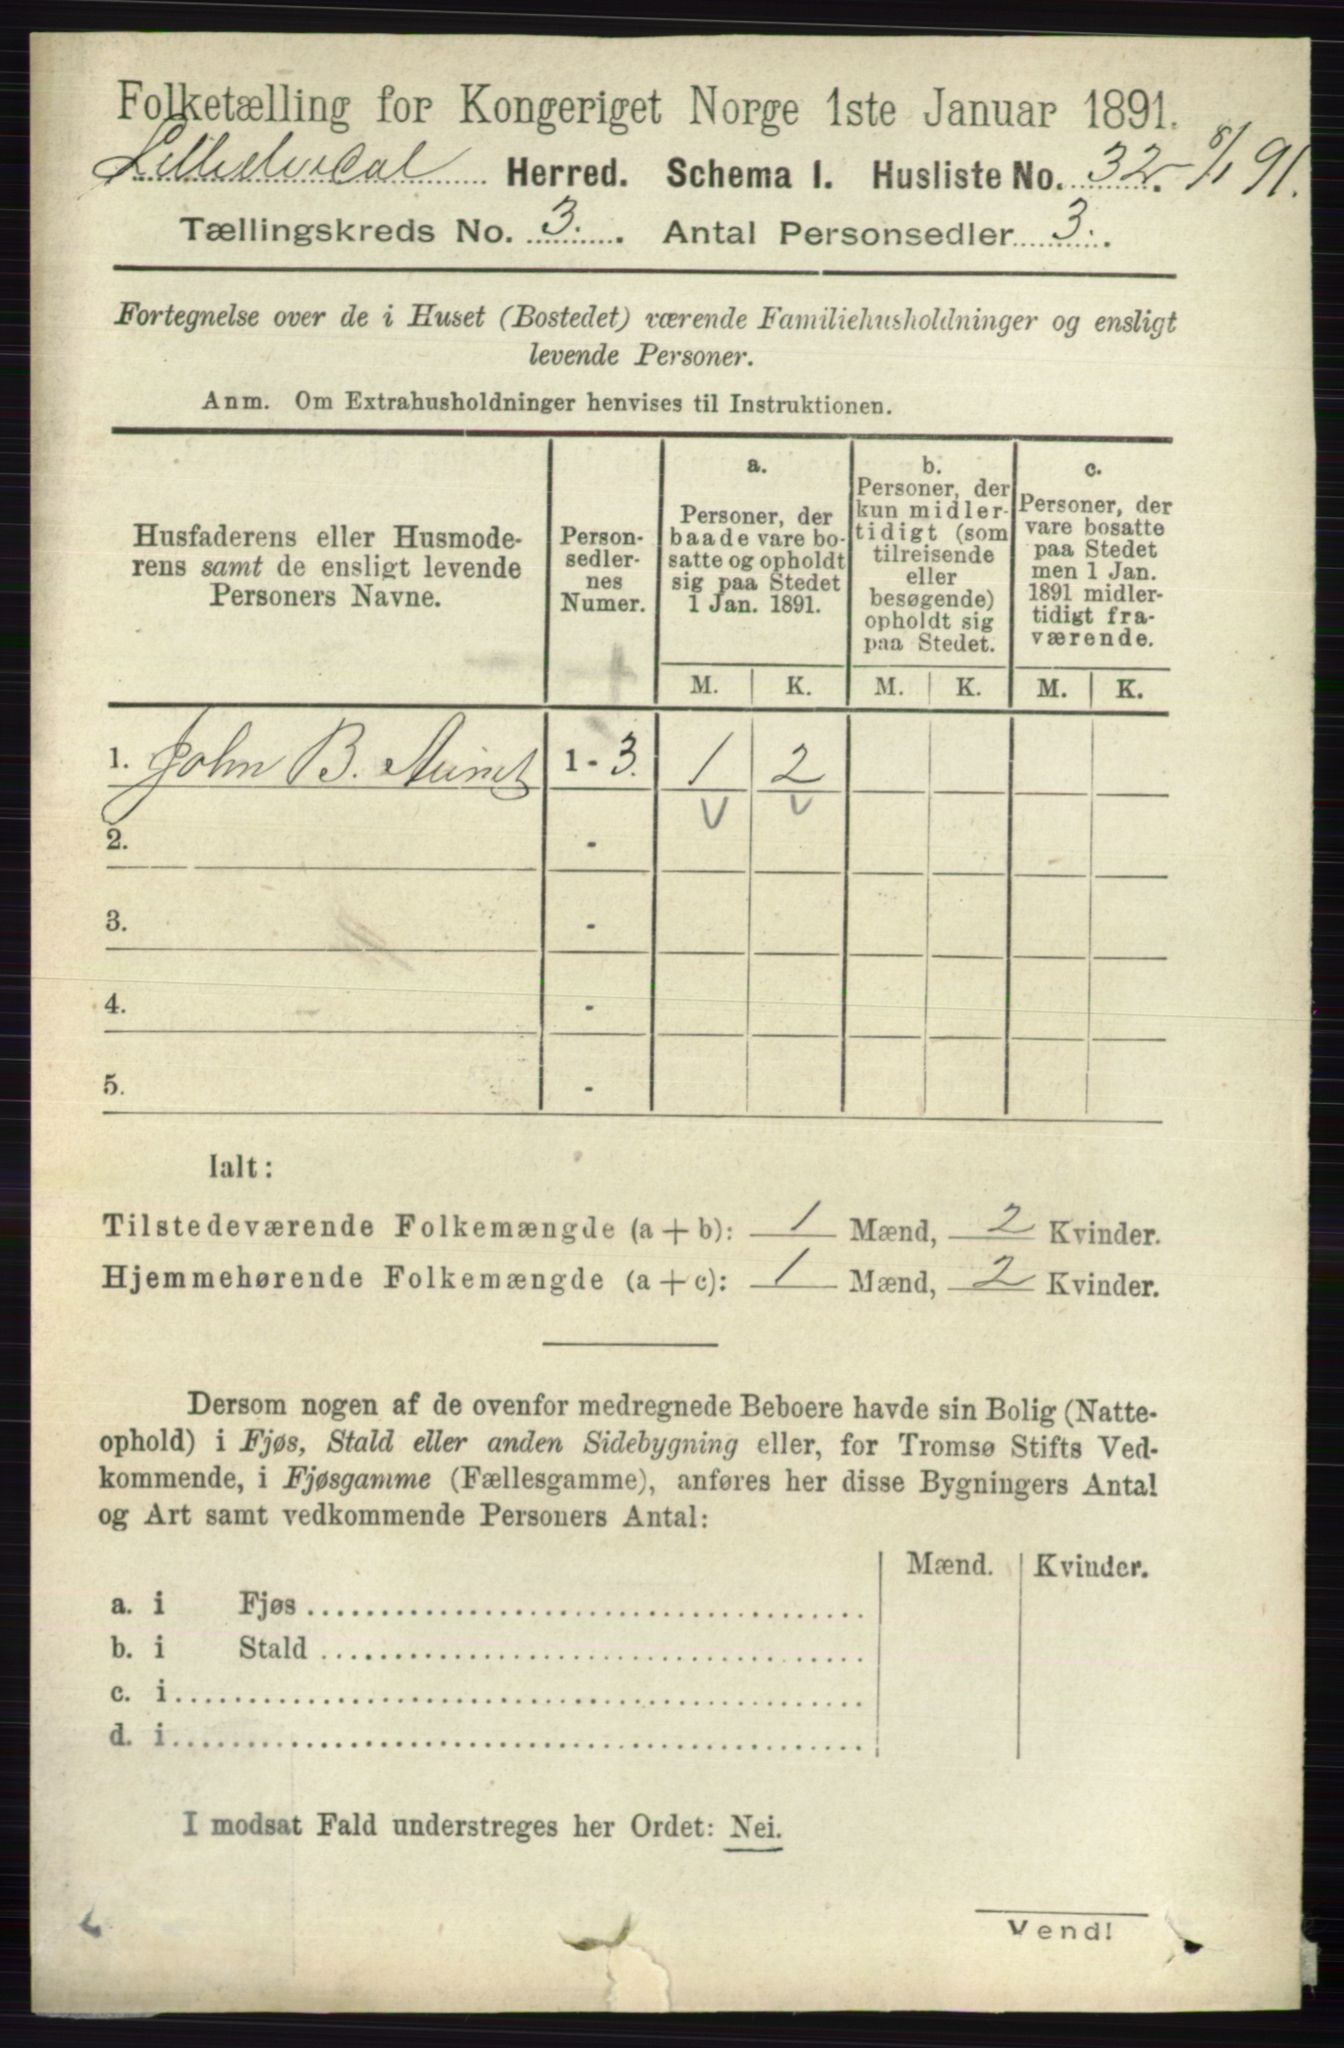 Folketælling for Kongeriget Norge 1ste Januar 1891.
Herred. Schema I. Husliste No. 32. 8/1 91.
Tællingskreds No. 3. Antal Personsedler 3.
Fortegnelse over de i Huset (Bostedet) værende Familiehusholdninger og ensligt
levende Personer.
Anm. Om Extrahusholdninger henvises til Instruktionen.
Husfaderens eller Husmode-
rens samt de ensligt levende
Personers Navne.
Person-
sedler-
nes
Numer.
a.
Personer, der
baade vare bo-
satte og opholdt
sig paa Stedet
1 Jan. 1891.
b.
Personer, der
kun midler-
tidigt (som
tilreisende
eller
besøgende)
opholdt sig
paa Stedet.
c.
Personer, der
vare bosatte
paa Stedet
men 1 Jan.
1891 midler-
tidigt fra-
værende.
M. K. M. K. M. K.
1. John B. 1 - 3. 1 2
2. -
3. -
4. -
5. -
Ialt:
Tilstedeværende Folkemængde (a + b): 1 Mænd, 2 Kvinder.
Hjemmehørende Folkemængde (a + c): 1 Mænd, 2 Kvinder.
Dersom nogen af de ovenfor medregnede Beboere havde sin Bolig (Natte-
ophold) i Fjøs, Stald eller anden Sidebygning eller, for Tromsø Stifts Ved-
kommende, i Fjøsgamme (Fællesgamme), anføres her disse Bygningers Antal
og Art samt vedkommende Personers Antal:
Mænd. Kvinder.
a. i Fjøs
b. i Stald
c. i
d. i
I modsat Fald understreges her Ordet: Nei.
Vend!